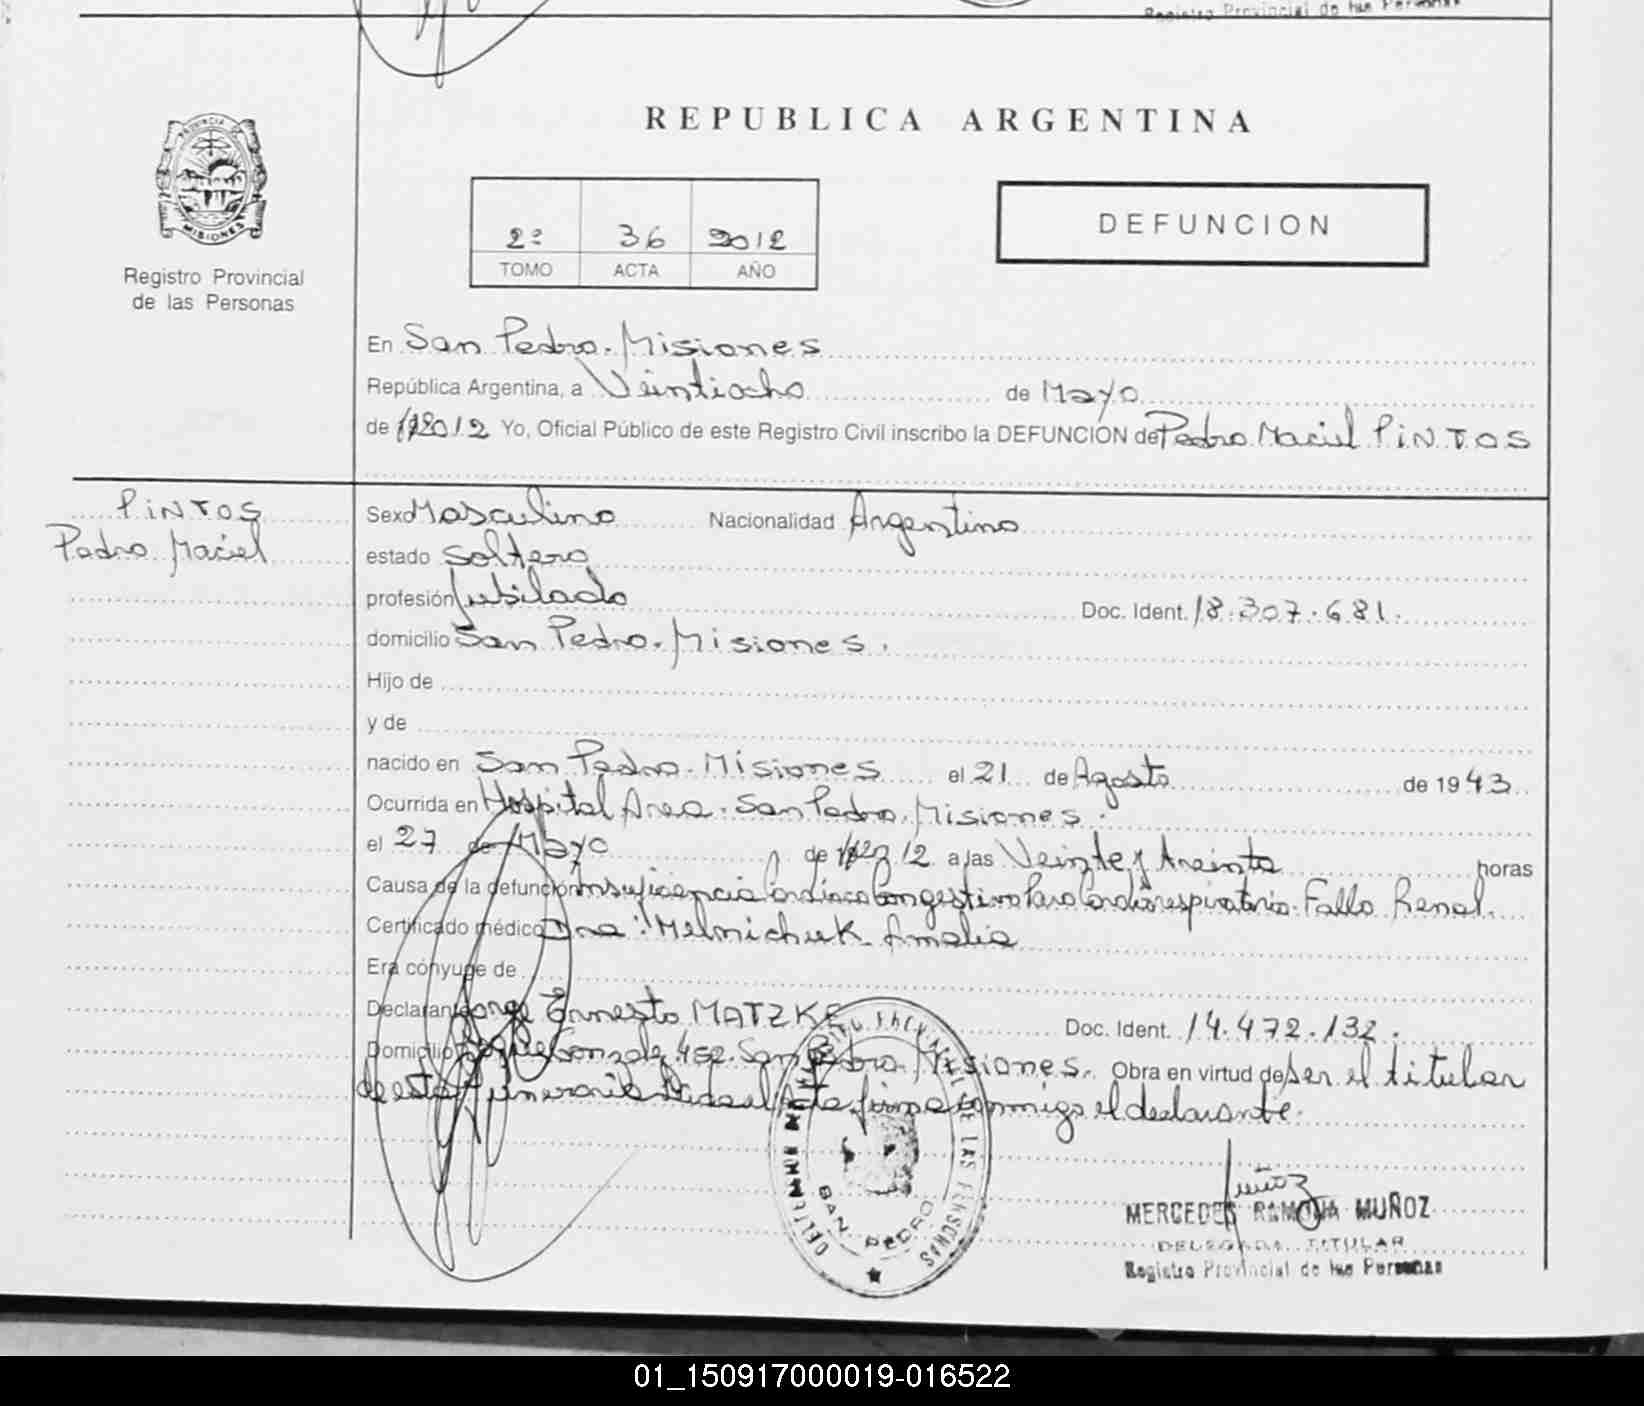 Registro Provincial de las Personas
REPUBLICA ARGENTINA
PROVINCIA DE
MISIONES
Registro Provincial
de las Personas
2º 36 2012
TOMO ACTA AÑO
DEFUNCION
En San Pedro. Misiones
República Argentina, a Veintiocho de Mayo
de 2012 Yo, Oficial Público de este Registro Civil inscribo la DEFUNCION de Pedro Maciel PiNTOS
PiNTOS
Pedro Maciel
Sexo Masculino Nacionalidad Argentino
estado Soltero
profesión Jubilado Doc. Ident. 18.307.681.
domicilio San Pedro. Misiones.
Hijo de
y de
nacido en San Pedro. Misiones el 21 de Agosto de 1943
Ocurrida en Hospital Area. San Pedro. Misiones.
el 27 de Mayo de 2012 a las Veinte y treinta horas
Causa de la defunción Insuficiencia Cardiaca Congestiva Paro Cardiorespiratorio. Fallo Renal.
Certificado médico Dra: Melnichuk Amalia
Era cónyuge de
Declarante Jorge Ernesto MATZKE Doc. Ident. 14.472.132.
Domicilio 452. San Pedro. Misiones. Obra en virtud de Ser el titular
de esta funeraria Leida el Acta firma conmigo el declarante.
DE LAS PERSONAS
SAN PEDRO
Muñoz
MERCEDES RAMONA MUÑOZ
DELEGADA TITULAR
Registro Provincial de las Personas
01_150917000019-016522